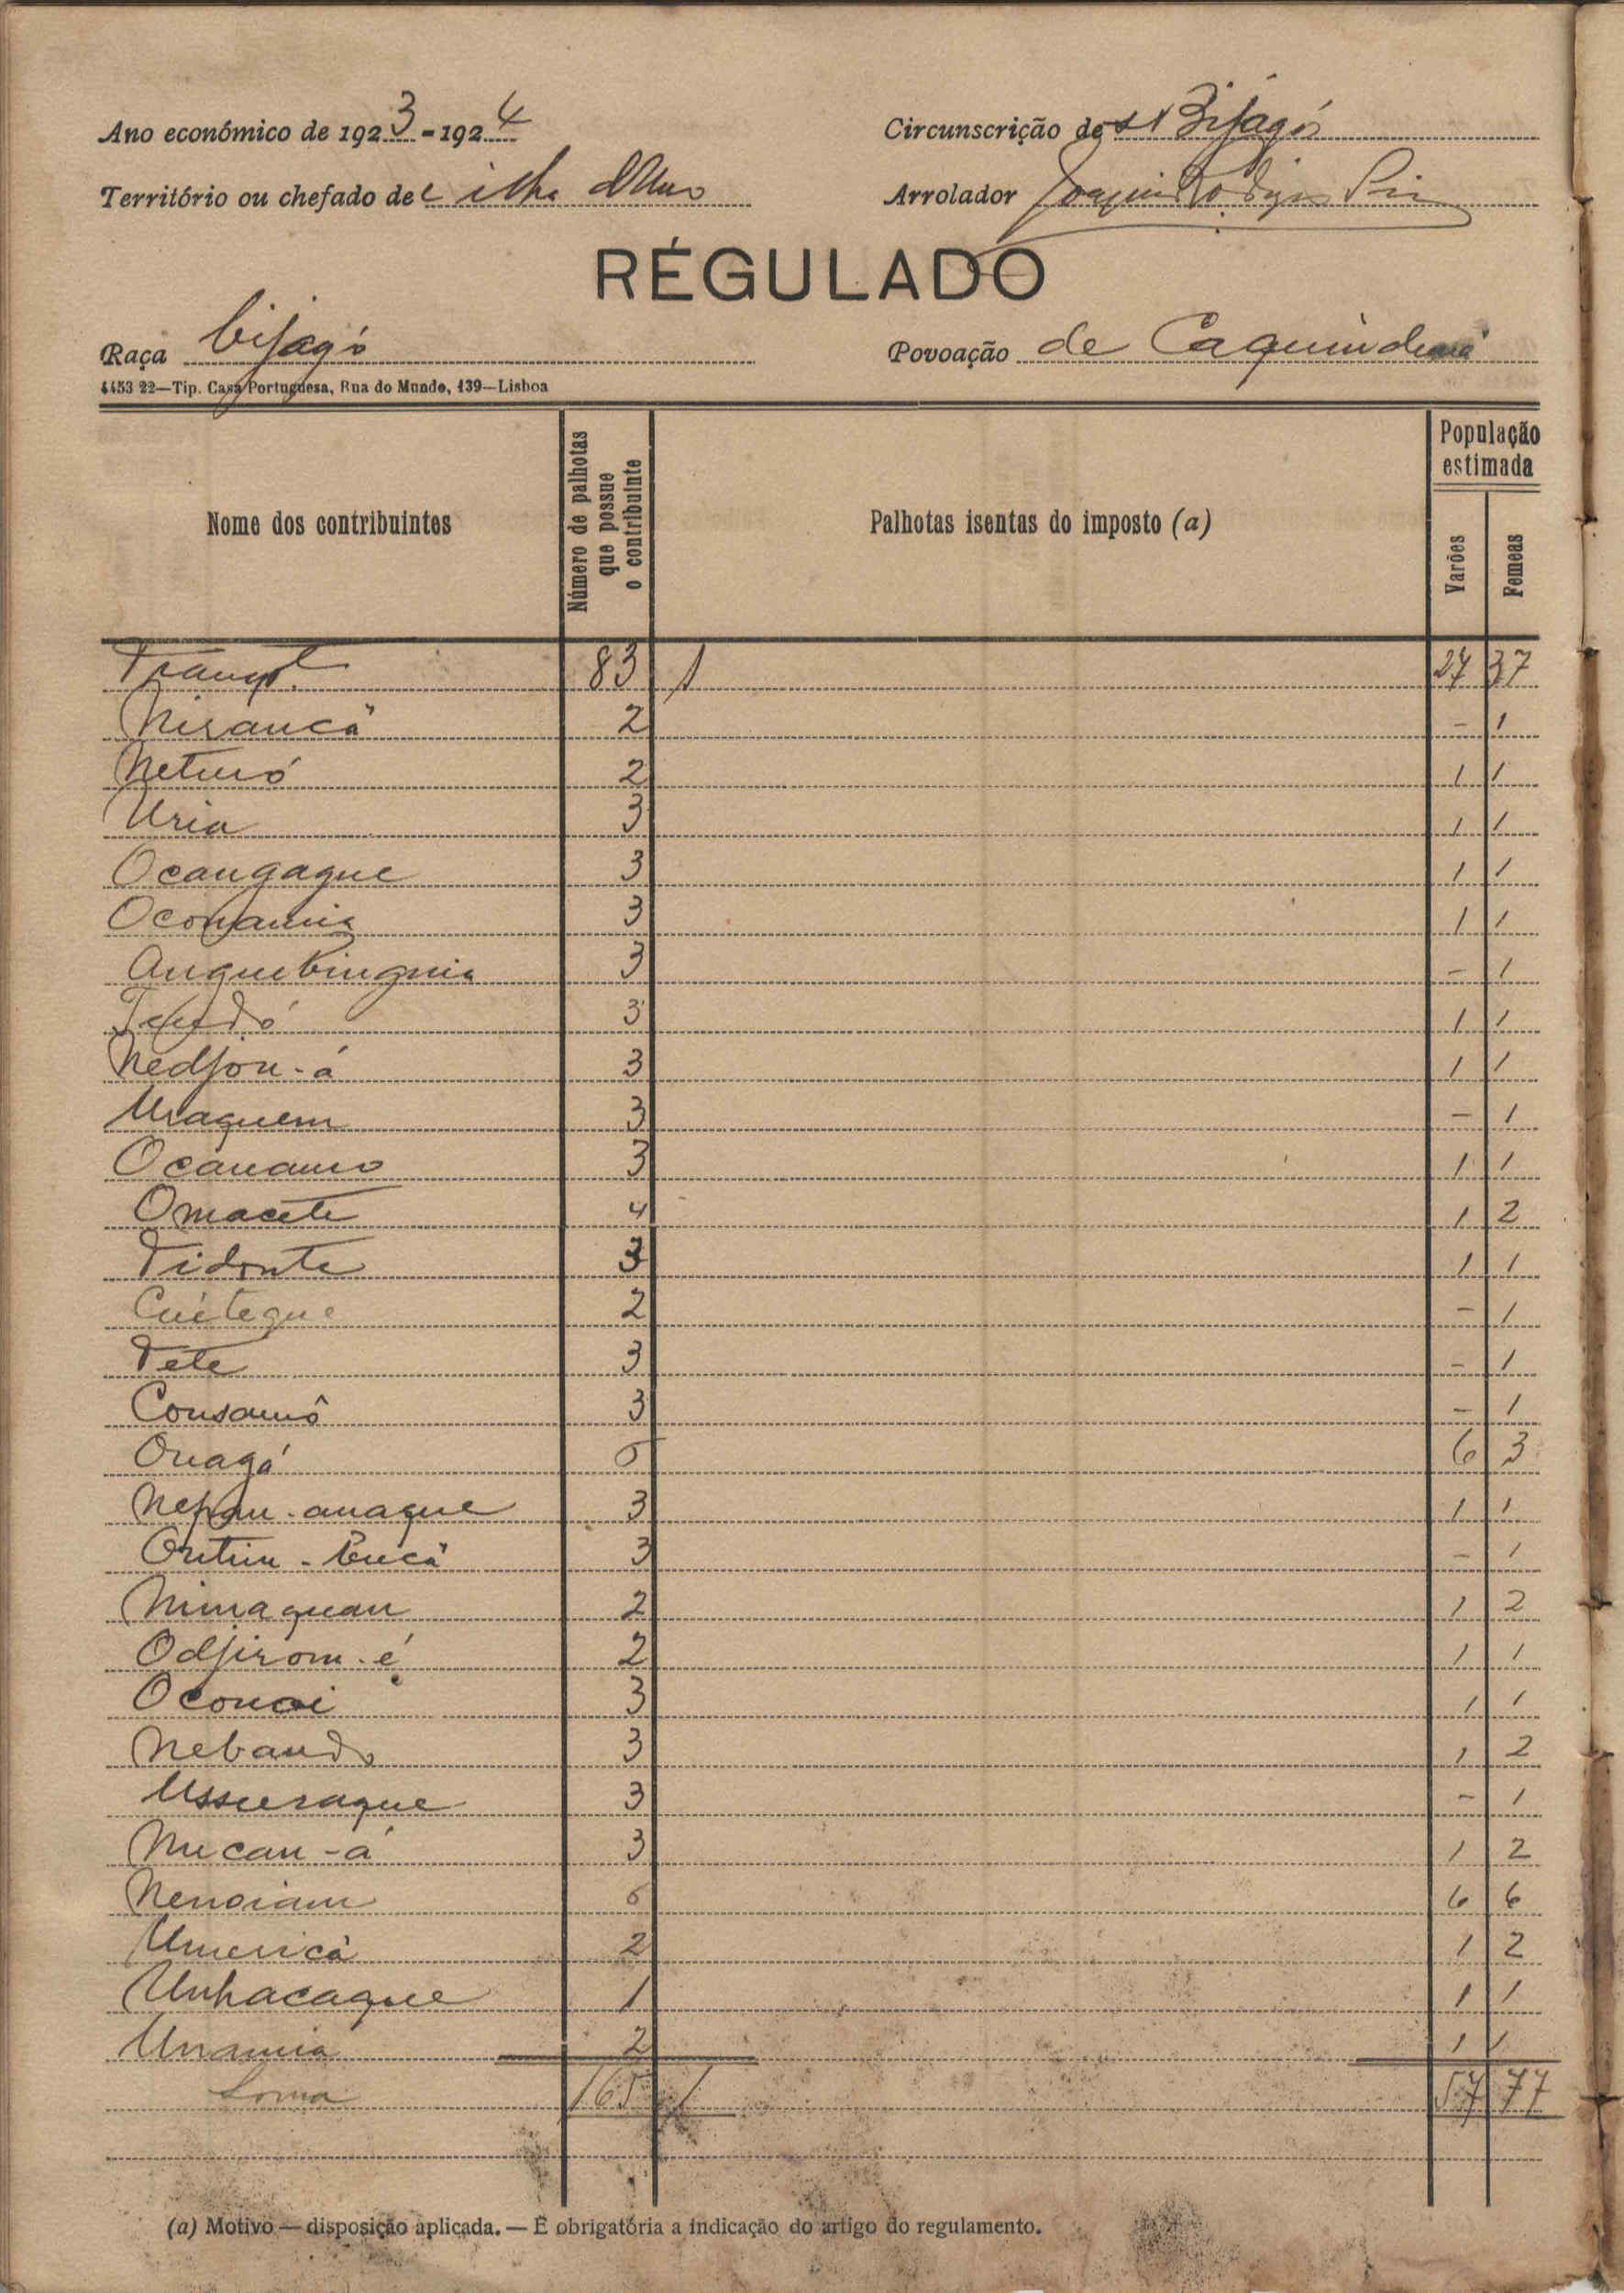 Ano económico de 1923-1924
Circunscrição de Bijagós
Território ou chefado de ilha d'Uno
Arrolador Joaquim Rodrigues
RÉGULADO
Raça bijagó
Povoação de
4453 22—Tip. Casa Portuguesa, Rua do Mundo, 139—Lisboa
Nome dos contribuintes
Número de palhotas que possue o contribuinte
Palhotas isentas do imposto (a)
População estimada
Varões
Femeas
Transpte 83 1 27 37
Nisaucã 2 - 1
2 1 1
Uria 3 1 1
Ocangaque 3 1 1
3 1 1
3 - 1
3 1 1
Nedjon-á 3 1 1
Uraquem 3 - 1
Ocanamo 3 1 1
Omacete 4 1 2
Tidonte 3 1 1
Cuiteque 2 - 1
Tete 3 - 1
Consamô 3 - 1
5 6 3
3 1 1
3 - 1
2 1 2
Odjirom-é 2 1 1
Oconoi 3 1 1
Nebando 3 1 2
Ussuraque 3 - 1
Nucan-á 3 1 2
5 6 6
2 1 2
Unhacaque 1 1 1
2 1 1
Soma 165 1 57 77
(a) Motivo — disposição aplicada. — É obrigatória a indicação do artigo do regulamento.